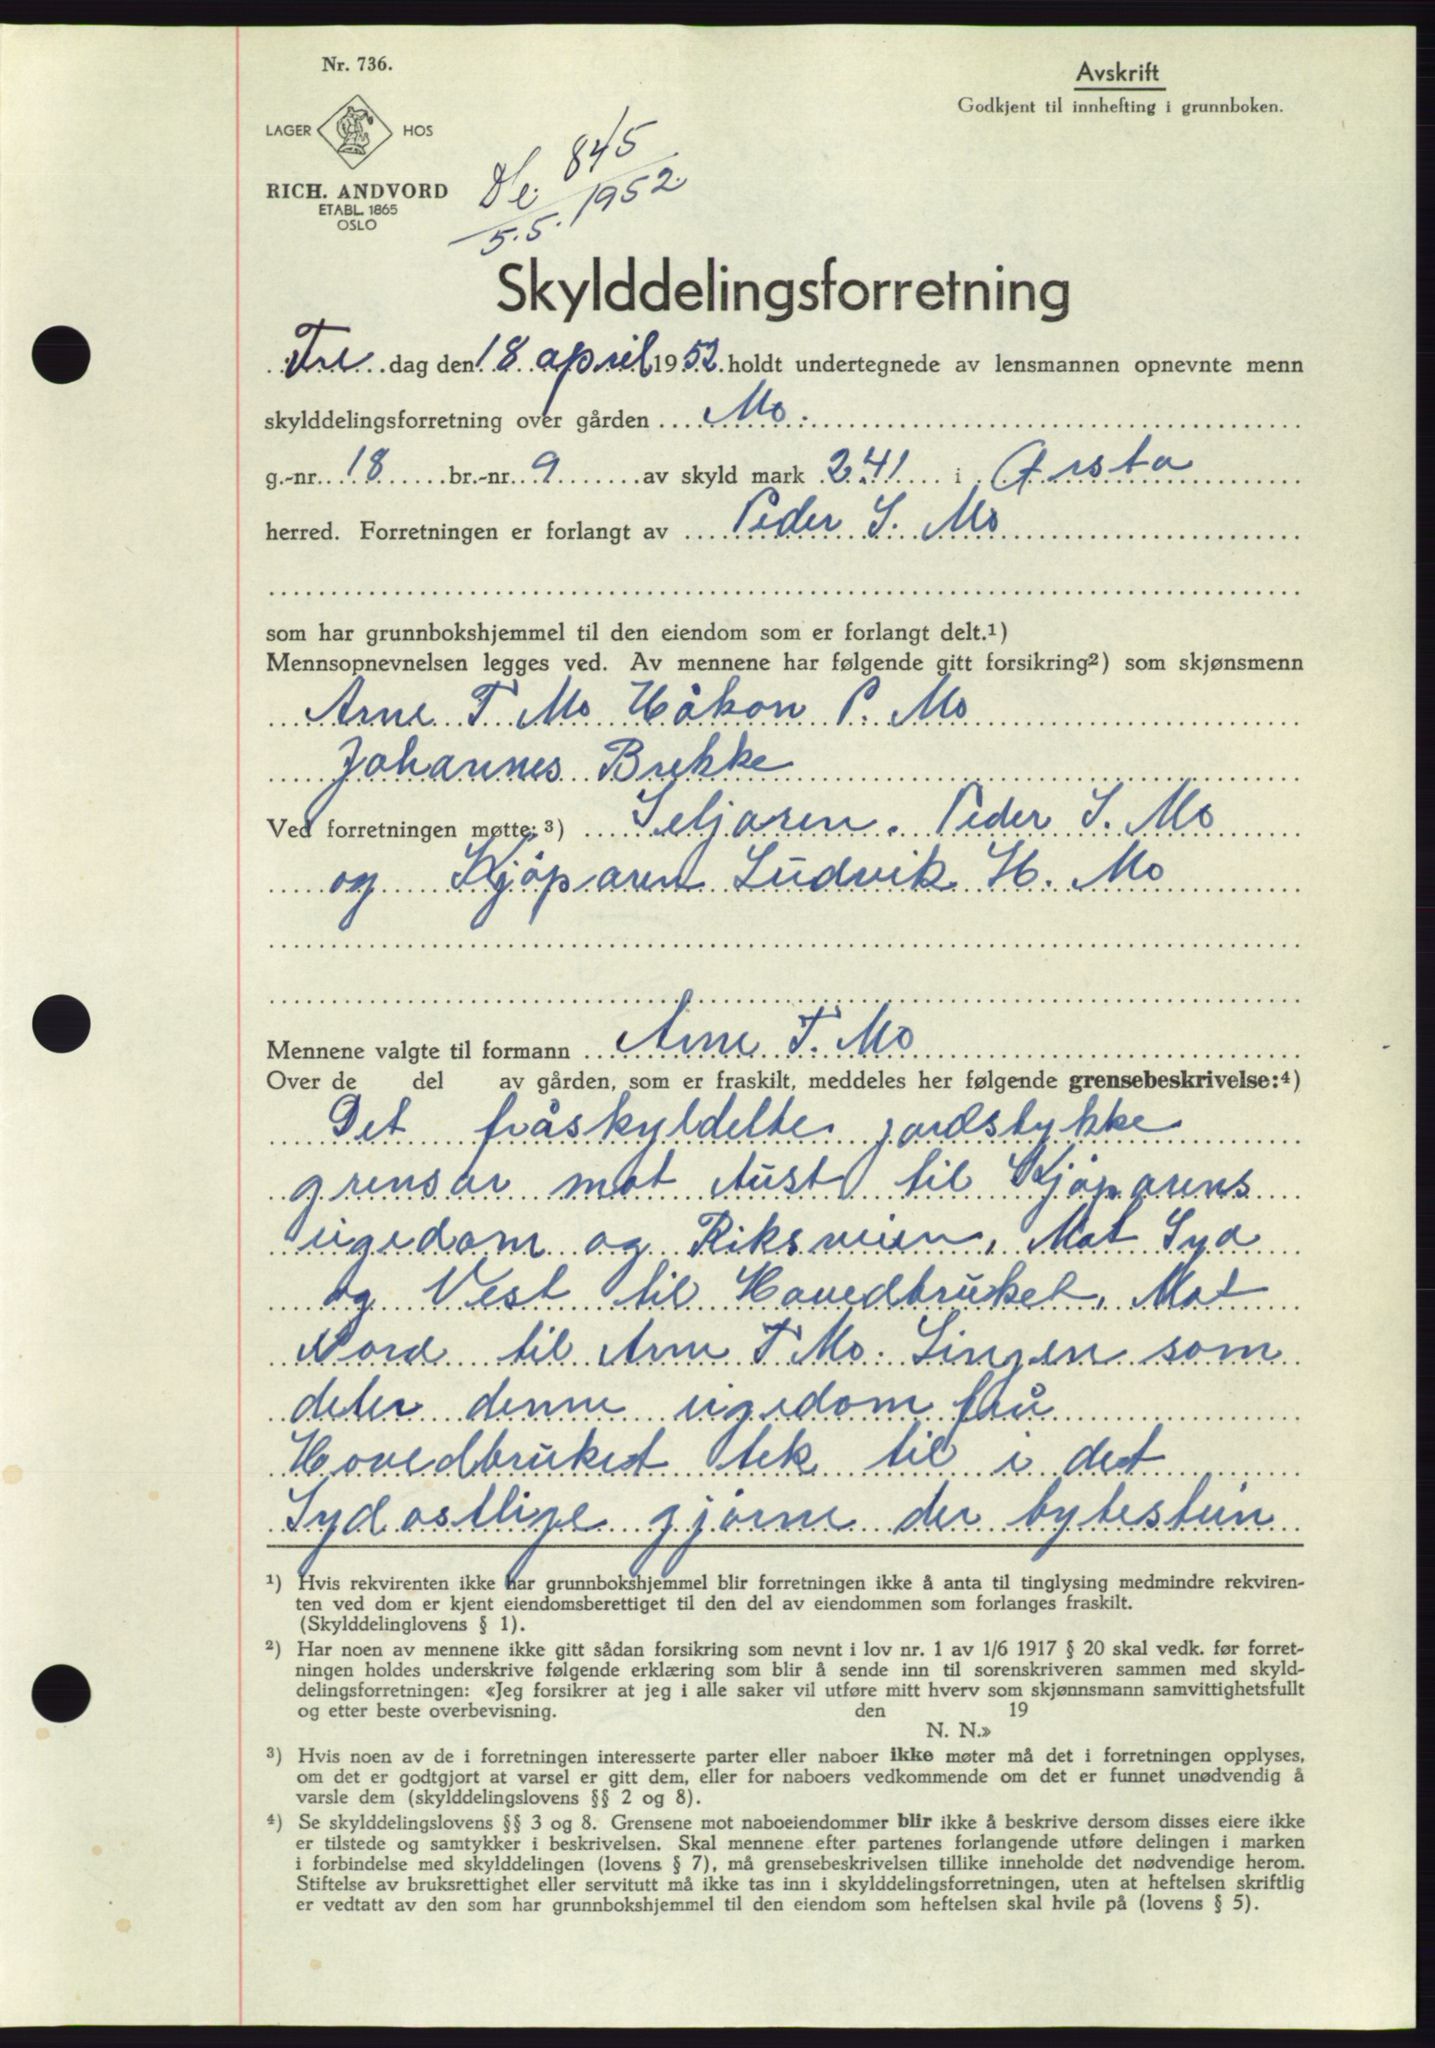 Nr. 736.
Avskrift
Godkjent til innhefting i grunnboken.
LAGER HOS
RICH. ANDVORD
ETABL. 1865
OSLO
845
5.5. 1952.
Skylddelingsforretning
Fredag den 18 april 1952 holdt undertegnede av lensmannen opnevnte menn
skylddelingsforretning over gården Mo.
g.-nr. 18 br.-nr. 9 av skyld mark 2.41 i Ørsta
herred. Forretningen er forlangt av Peder S. Mo
som har grunnbokshjemmel til den eiendom som er forlangt delt.¹)
Mennsopnevnelsen legges ved. Av mennene har følgende gitt forsikring²) som skjønsmenn
Arne T Mo Håkon P. Mo
Johannes Brekke
Ved forretningen møtte: ³) Seljaren. Peder S. Mo
og Kjöparen Ludvik H. Mo
Mennene valgte til formann Arne T. Mo
Over de del av gården, som er fraskilt, meddeles her følgende grensebeskrivelse:⁴)
Det fråskyldelte jordstykke
grensar mot Aust til Kjöparens
eigedom og Riksveien, Mot Syd
og Vest til Hovedbruket, Mot
Nord til Arne T Mo. Linjen som
deler denne eigedom frå
Hovedbruket tek til i det
Sydostlige hjörne der bytestein
¹) Hvis rekvirenten ikke har grunnbokshjemmel blir forretningen ikke å anta til tinglysing medmindre rekviren-
ten ved dom er kjent eiendomsberettiget til den del av eiendommen som forlanges fraskilt.
(Skylddelinglovens § 1).
²) Har noen av mennene ikke gitt sådan forsikring som nevnt i lov nr. 1 av 1/6 1917 § 20 skal vedk. før forret-
ningen holdes underskrive følgende erklæring som blir å sende inn til sorenskriveren sammen med skyld-
delingsforretningen: «Jeg forsikrer at jeg i alle saker vil utføre mitt hverv som skjønnsmann samvittighetsfullt
og etter beste overbevisning. den 19
N. N.»
³) Hvis noen av de i forretningen interesserte parter eller naboer ikke møter må det i forretningen opplyses,
om det er godtgjort at varsel er gitt dem, eller for naboers vedkommende om det er funnet unødvendig å
varsle dem (skylddelingslovens §§ 2 og 8).
⁴) Se skylddelingslovens §§ 3 og 8. Grensene mot naboeiendommer blir ikke å beskrive dersom disses eiere ikke
er tilstede og samtykker i beskrivelsen. Skal mennene efter partenes forlangende utføre delingen i marken
i forbindelse med skylddelingen (lovens § 7), må grensebeskrivelsen tillike inneholde det nødvendige herom.
Stiftelse av bruksrettighet eller servitutt må ikke tas inn i skylddelingsforretningen, uten at heftelsen skriftlig
er vedtatt av den som har grunnbokshjemmel til den eiendom som heftelsen skal hvile på (lovens § 5).